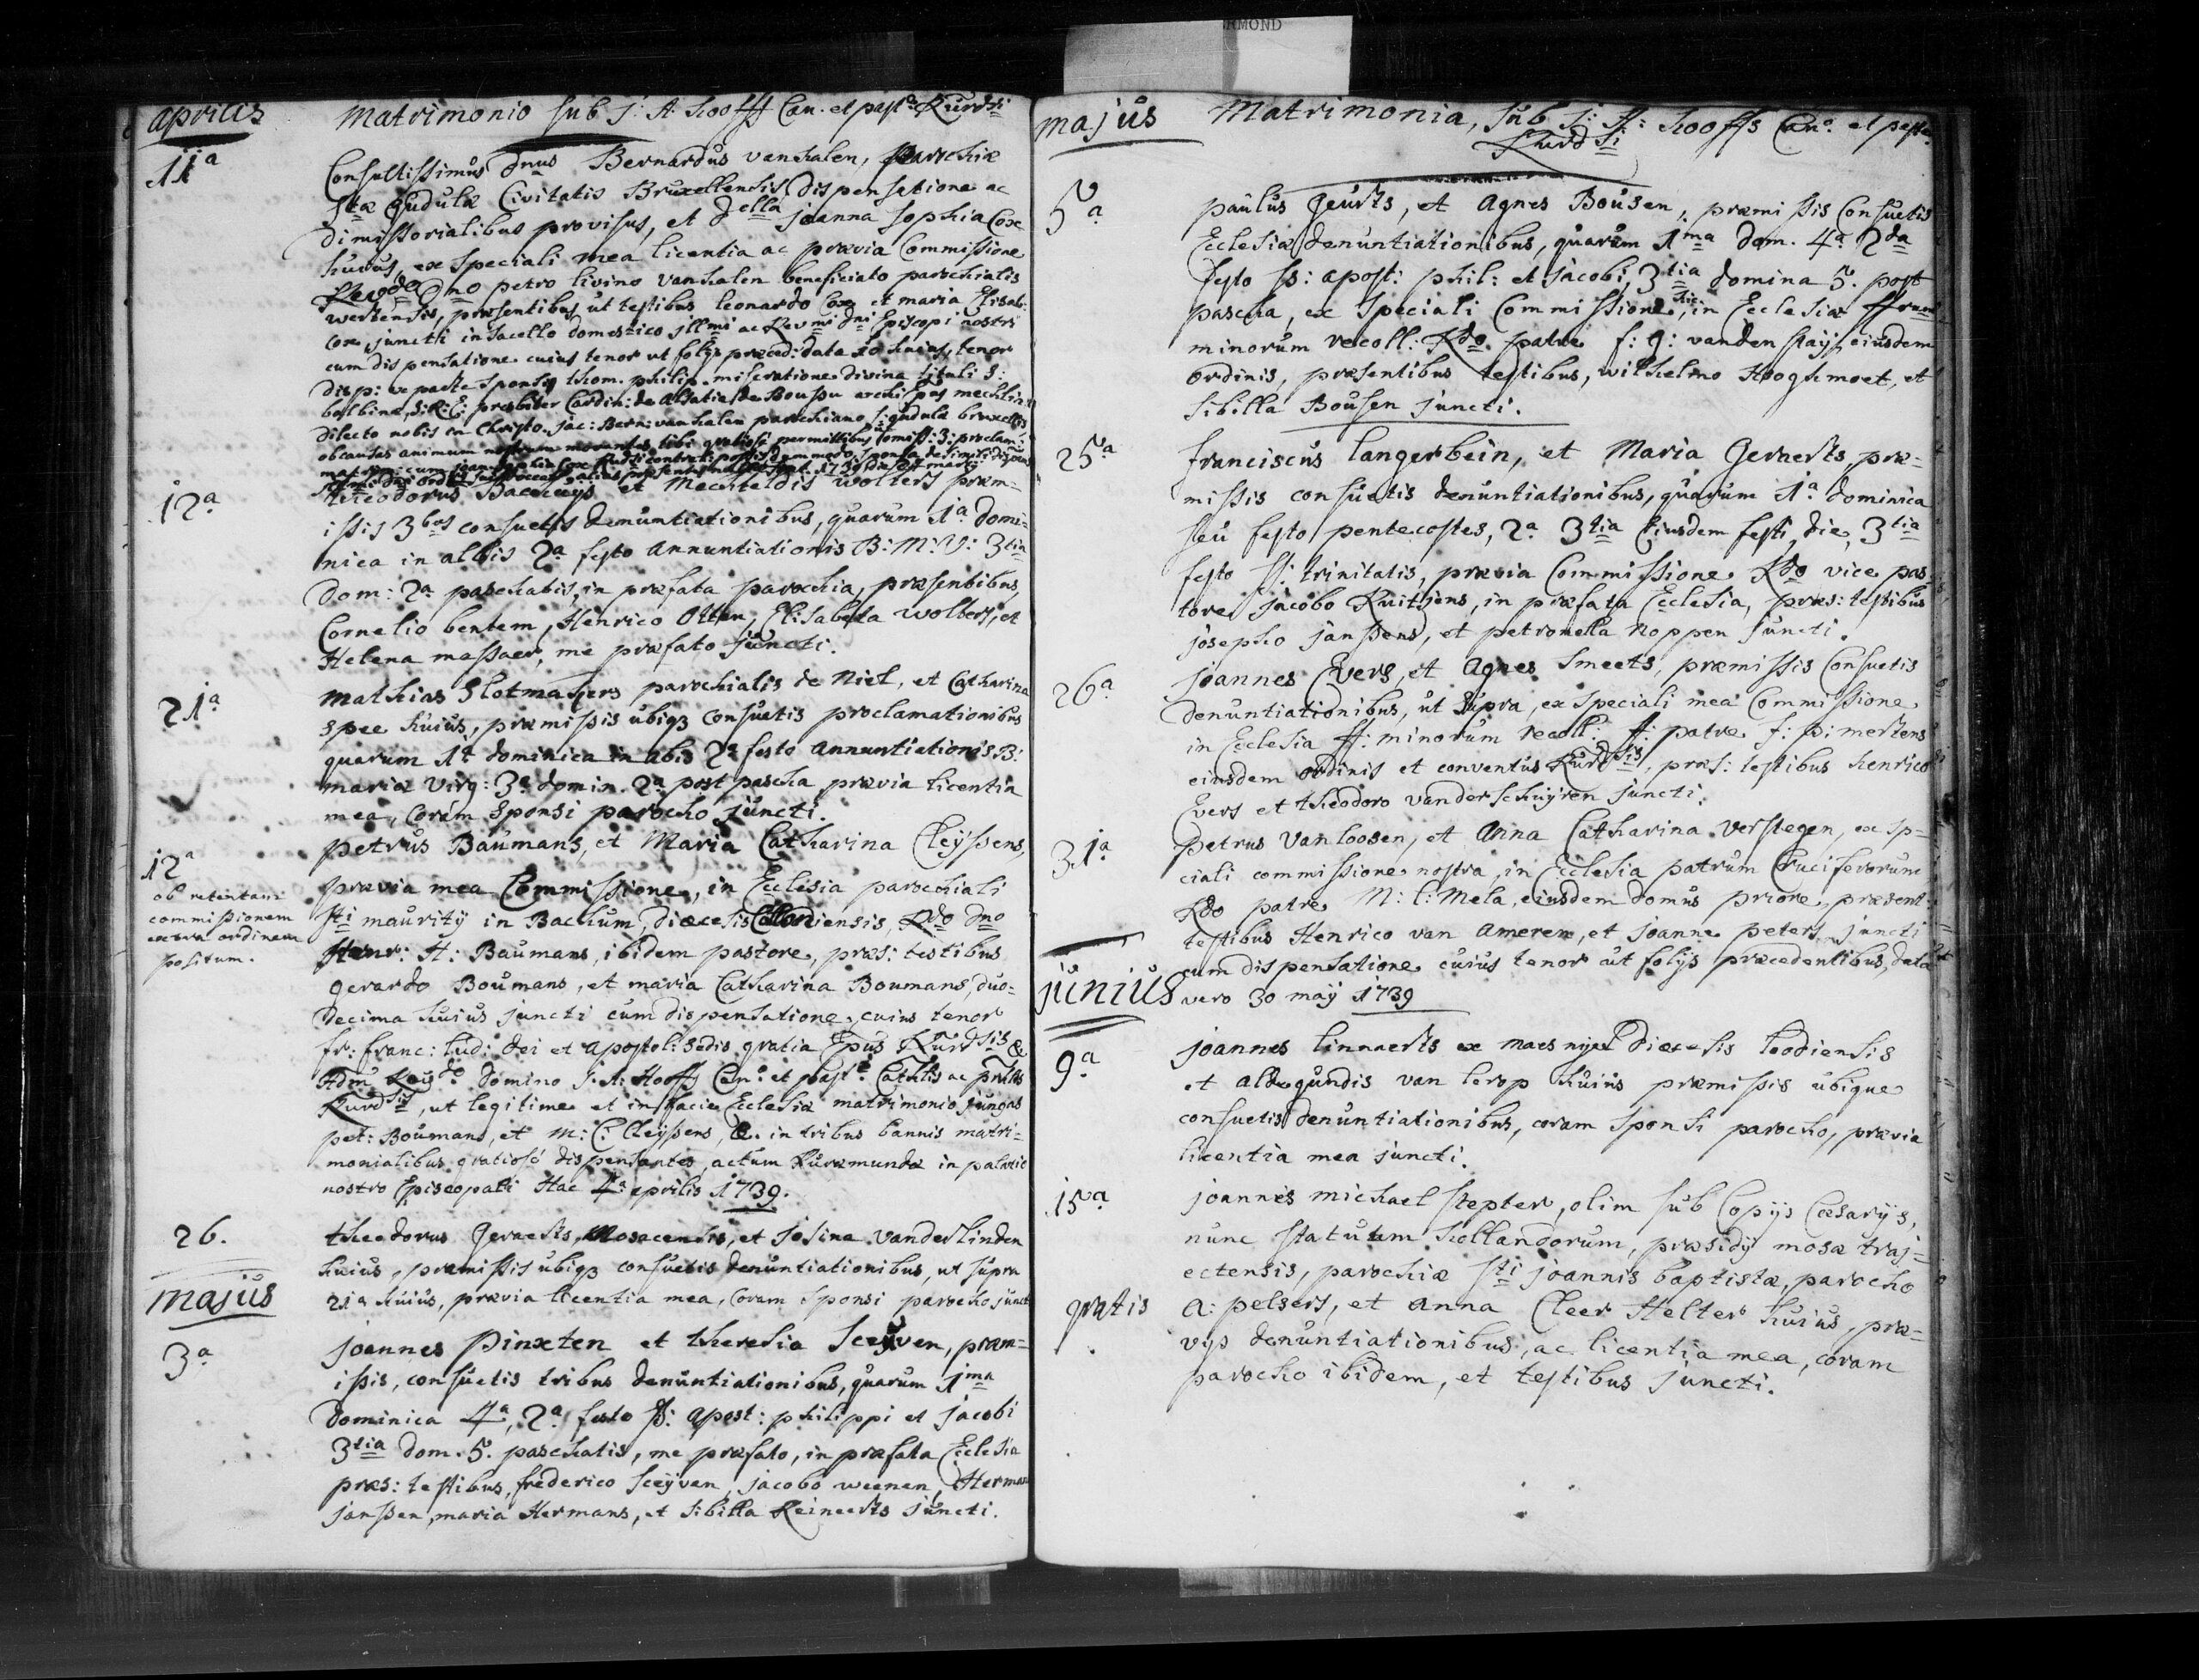 RMOND
aprilis
Matrimonio sub J: A: Hooffs Can. et past. Rurdsi
11a
Consultissimus dnus Bernardus vanhalen, parochiæ
Stæ Gudulæ Civitatis Bruxellensis dispensatione ac
dimissorialibus provisus, et dcella joanna sophia Cox
huius, ex speciali mea licentia ac prævia Commissione
Revdo Dno petro livino vanhalen beneficiato parochialis
wertensis, præsentibus ut testibus leonardo Cox et maria Elisab:
Cox juncti in sacello domestico illmi ac Revmi dni Episcopi nostri
cum dispensatione cuius tenor ut folijs præced: data 10 huius, tenor
disp: ex parte sponsi thom. philip. miseratione divina tituli S:
balbinæ S:R:E: presbiter Cardin: de alsatia de Boussu archi pus mechlin:
dilecto nobis in Christo Jac: Bern: van halen parochiano S: gudula bruxellis
ob causas animum nostrum moventes tibi gratiose permittibus omiss: 3: proclam:
12a
theodorus et Mechteldis wolters præm=
issis 3bus consuetis denuntiationibus, quarum 1a domi=
nica in albis 2a festo annuntiationis B: M: V: 3tia
dom: 2a paschatis, in præfata parochia, præsentibus
Cornelio bentem, Henrico Otten, Elisabeta wolters, et
Helena massaer, me præfato juncti.
21a
Mathias Slotmakers parochialis de Niel, et Catharina
spee huius, præmissis ubiq3 consuetis proclamationibus
quarum 1a dominica in abis 2a festo annuntiationis B:
mariæ virg: 3a domin. 2a post pascha prævia licentia
mea, coram sponsi parocho juncti.
12a
ob retentam
commissionem
extra ordinem
positum.
petrus Baumans, et Maria Catharina Cleyssens,
prævia mea Commissione, in Ecclesia parochiali
Sti maurity in Bachum, diæcesis Rdo dno
Henr: H: Baumans, ibidem pastore, præs: testibus
gerardo Boumans, et maria Catharina Boumans, duo=
decima huius juncti cum dispensatione, cuius tenor
fr: franc: lud: dei et apostoli: sedis gratia Epus Rurdsis &
Admr Revdo domino J. A: Hooffs Can: et past: Cathlis ac
Rurdsis, ut legitime et in facie Ecclesiæ matrimonio jungas
pet: Boumans, et M: C: Cleyssens, &. in tribus bannis matri=
monialibus gratiosé dispensantes, actum Ruræmundæ in palatio
nostro Episcopali Hac 4a aprilis 1739.
26.
theodorus Geraerts, Mosacensis, et Josina Vanderlinden
huius, præmissis ubiq3 consuetis denuntiationibus, ut supra
21a huius, prævia licentia mea, coram sponsi parocho junct
Majus
3a
joannes Pinxten et theresia Sceyven, præm=
issis, consuetis tribus denuntiationibus, quarum 1ma
Dominica 4a, 2a festo SS: apost: philippi et jacobi
3tia dom. 5. paschatis, me præfato, in præfata Ecclesia
præs: testibus, frederico Sceyven, jacobo weenen, Herman
janssen, maria Hermans, et sibilla Reineerts juncti.
majus
Matrimonia, sub J: A: Hooffs Cano. et past.
Rurdsi
5a
paulus Geurts, et Agnes Bousen, præmissis Consuetis
Ecclesiæ denuntiationibus, quarum 1ma dom. 4a 2da
festo ss: apost: phil: et jacobi, 3tia domina 5. post
pascha, ex speciali Commissione, in Ecclesia
minorum recoll: Rdo patre f: g: vanden staij, eiusdem
ordinis, præsentibus testibus, wilhelmo Hooghmoet, et
sibilla Bousen juncti.
25a
franciscus langerbein, et Maria Geraerts, præ=
missis consuetis denuntiationibus, quarum 1a dominica
seu festo pentecostes, 2a 3tia eiusdem festi, die, 3tia
festo ss: trinitatis, prævia Commissione Rdo vice pas=
tore jacobo Kuitjens, in præfata Ecclesia, præs: testibus
josepho janssens, et petronella noppen juncti.
26a
joannes Evers, et Agnes Smeets, præmissis Consuetis
denuntiationibus, ut supra, ex speciali mea Commissione
in Ecclesia ff: minorum recoll: patre f: P: mertens
eiusdem ordinis et conventus Rurdsis, præs: testibus henrico
Evers et theodoro vander schuijren juncti.
31a
petrus Vanloosen, et Anna Catharina Verstegen, ex sp=
ciali commissione nostra, in Ecclesia patrum Cruciferorum
Rdo patre N: l: Mela, eiusdem domus priore, præsent
testibus Henrico van Ameren, et joanne peters juncti
cum dispensatione cuius tenor ut folijs præcedentibus, data
vero 30 maij 1739
junius
9a
joannes linnaerts ex maes nijel diæcesis leodiensis
et aldegundis van lerop huius præmissis ubique
consuetis denuntiationibus, coram sponsi parocho, prævia
licentia mea juncti.
15a
joannes michael stepter, olim sub Copijs Cæsarijs,
nunc statuum hollandorum, præsidij mosæ traj=
ectensis, parochiæ Sti joannis baptistæ, parocho
gratis
A: pelsers, et Anna Cleer Helter huius, præ=
vijs denuntiationibus, ac licentia mea, coram
parocho ibidem, et testibus juncti.